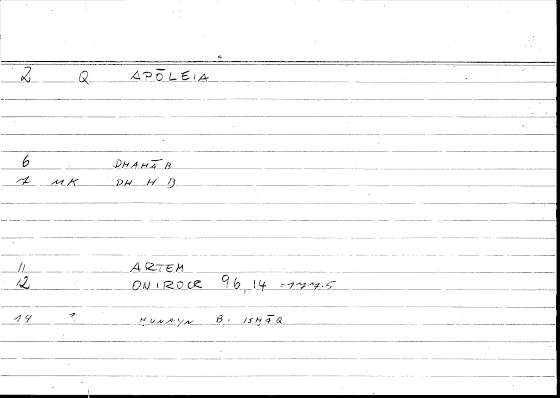 2 Q APŌLEIA
6 DHAHĀB
7 MK DH H B
11 ARTEM
12 ONIROCR 96,14 = 177.5
14 ḤUNAYN B. ISḤĀQ